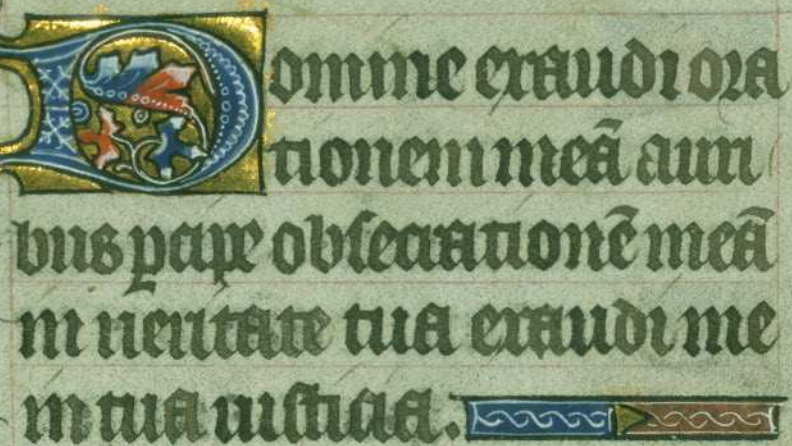 Domine exaudi ora
tionem meā auri
bus ꝑcipe obſecrationē meā
in ueritate tua exaudi me
in tua iuſticia.